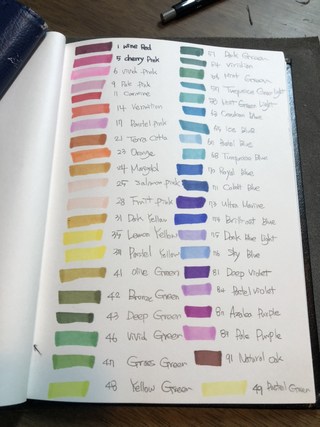 1 Wine Red
5 cherry Pink
6 Vivid Pink
9 Pale Pink
11 Carmine
14 Vermilion
17 Pastel Pink
21 Terra Cotta
23 Orange
24 Marigold
25 Salmon Pink
28 Fruit Pink
31 Dark Yellow
35 Lemon Yellow
Pastel Yellow
41 Olive Green
42 Bronze Green
43 Deep Green
46 Vivid Green
47 Grass Green
48 Yellow Green
Dark Green
Viridian
Mint Green
Turquoise Green Light
Mint Green Light
Cerulean Blue
Ice Blue
Pastel Blue
Turquoise Blue
Royal Blue
Cobalt Blue
Ultra Marine
Brilliant Blue
Dark Blue Light
Sky Blue
81 Deep Violet
Pastel Violet
Azalea Purple
89 Pale Purple
91 Natural Oak
49 Pastel Green